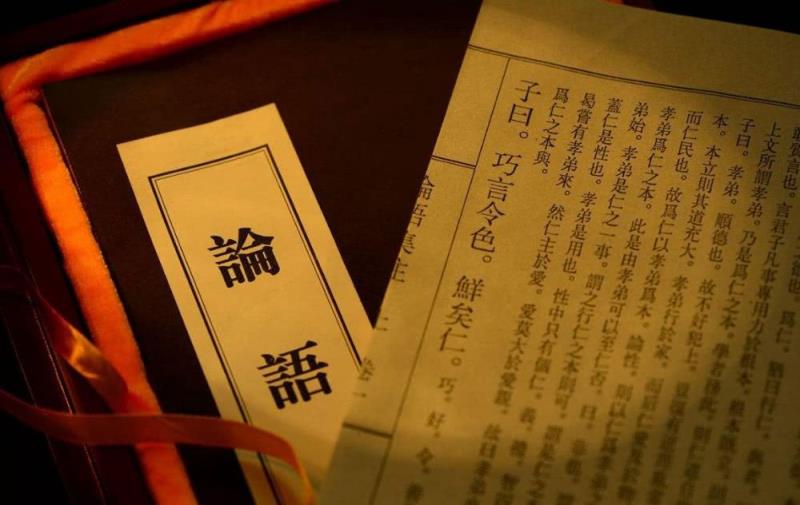 論語
質言也。言君子凡事專用力於根本。根本既立。
上文所謂孝弟。乃是爲仁之本。學者務此。則仁道自
子曰。孝弟。順德也。故不好犯上。豈復有逆理亂
本。本立則其道充大。孝弟行於家。而后仁愛及於物
而仁民也。故爲仁以孝弟爲本。論性。則以仁爲孝弟
孝弟爲仁之本。此是由孝弟可以至仁否。曰。非也。謂
弟始。孝弟是仁之一事。謂之行仁之本則可。謂是仁
蓋仁是性也。孝弟是用也。性中只有個仁。義。禮。智
曷嘗有孝弟來。然仁主於愛。愛莫大於愛親。故曰孝弟
爲仁之本與。
子曰。巧言令色。鮮矣仁。巧。好。令。善
論語集注 卷一